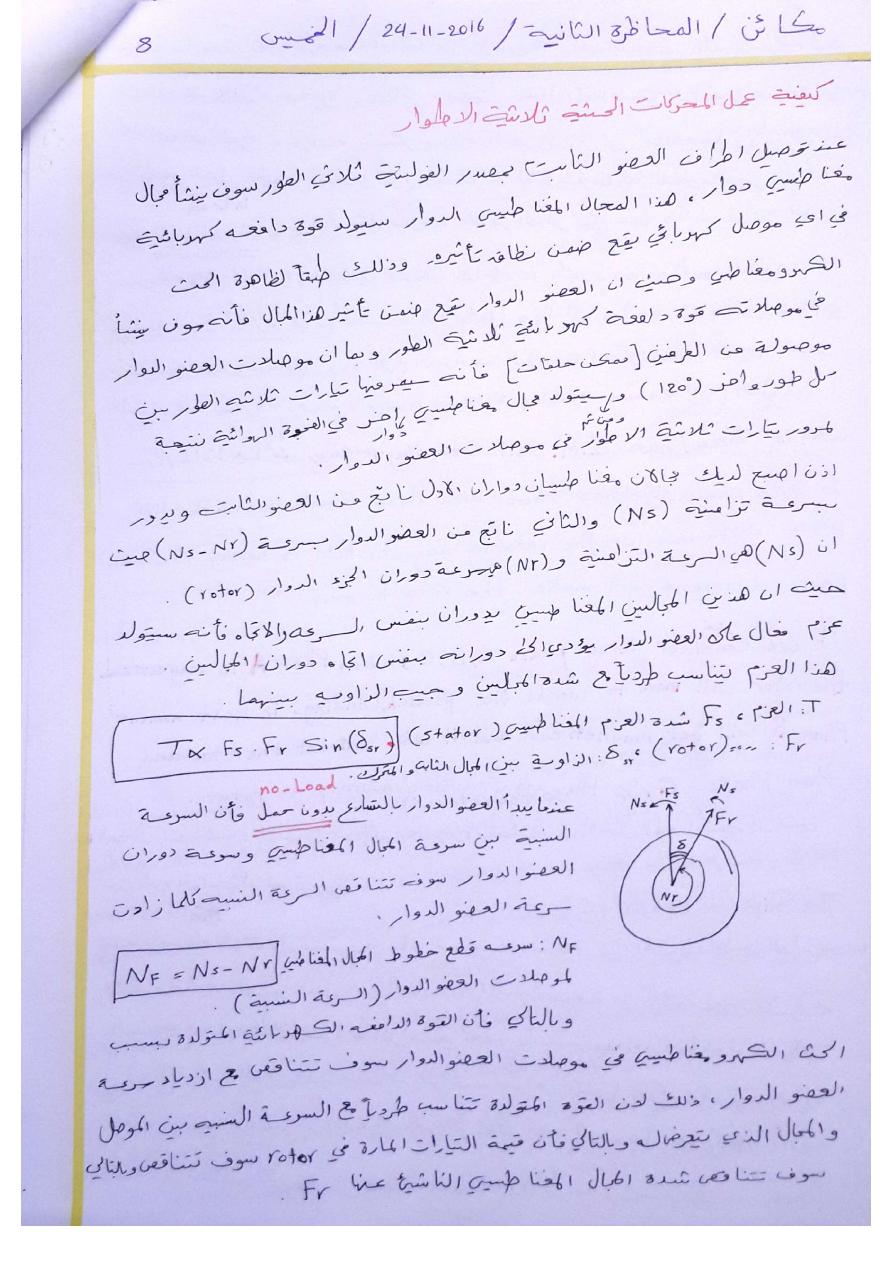 مكائن / المحاظرة الثانية / 24-11-2016 / الخميس
8
كيفية عمل المحركات الحثية ثلاثية الاطوار
عند توصيل اطراف العضو الثابت بمصدر الفولتية ثلاثي الطور سوف ينشأ مجال
مغناطيسي دوار ، هذا المجال المغناطيسي الدوار سيولد قوة دافعه كهربائية
في اي موصل كهربائي يقع ضمن نطاق تأثيره وذلك طبقاً لظاهرة الحث
الكهرومغناطي وحيث ان العضو الدوار يقع ضمن تأثير هذا المجال فأنه سوف ينشأ
في موصلاته قوة دافعة كهربائية ثلاثية الطور وبما ان موصلات العضو الدوار
موصولة من الطرفين [ممكن حلقات] فأنه سيمر فيها تيارات ثلاثيه الطور بين
كل طور واخر (120°) ومن ثم سيتولد مجال مغناطيسي دوار اخر في الفجوة الهوائية نتيجة
لمرور تيارات ثلاثية الاطوار في موصلات العضو الدوار .
اذن اصبح لديك مجالان مغناطيسيان دواران الاول ناتج من العضو الثابت ويدور
بسرعة تزامنية (Ns) والثاني ناتج من العضو الدوار بسرعة (Ns-Nr) حيث
ان (Ns) هي السرعة التزامنية و (Nr) هي سرعة دوران الجزء الدوار (rotor) .
حيث ان هذين المجالين المغناطيسي يدوران بنفس السرعه والاتجاه فأنه سيتولد
عزم فعال على العضو الدوار يؤدي الى دورانه بنفس اتجاه دوران المجالين .
هذا العزم يتناسب طردياً مع شدة المجالين و جيب الزاويه بينهما .
T : العزم ، Fs شدة العزم المغناطيسي (stator)
T∝ Fs . Fr Sin(δsr)
Fr : .... (rotor) ، δsr : الزاوية بين المجال الثابت والمتحرك .
no-Load
عندما يبدأ العضو الدوار بالتسارع بدون حمل فأن السرعة
النسبية بين سرعة المجال المغناطيسي وسرعة دوران
العضو الدوار سوف تتناقص السرعة النسبيه كلما زادت
سرعة العضو الدوار .
Ns Fs Ns
Fr
δ
Nr
NF : سرعه قطع خطوط المجال المغناطيسي
NF = Ns - Nr
لموصلات العضو الدوار (السرعة النسبية) .
وبالتالي فأن القوة الدافعه الكهربائية المتولدة بسبب
الحث الكهرومغناطيسي في موصلات العضو الدوار سوف تتناقص مع ازدياد سرعة
العضو الدوار ، ذلك لان القوه المتولدة تتناسب طردياً مع السرعة النسبيه بين الموصل
والمجال الذي يتعرض له وبالتالي فأن قيمة التيارات المارة في rotor سوف تتناقص وبالتالي
سوف تتناقص شدة المجال المغناطيسي الناشئ عنها Fr .